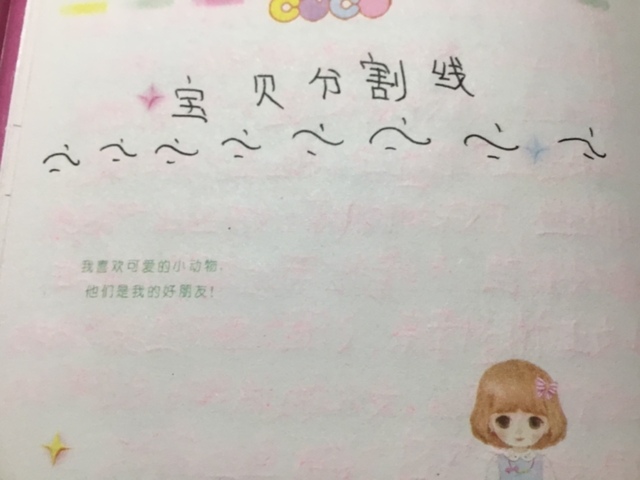 宝贝分割线
我喜欢可爱的小动物,
他们是我的好朋友!